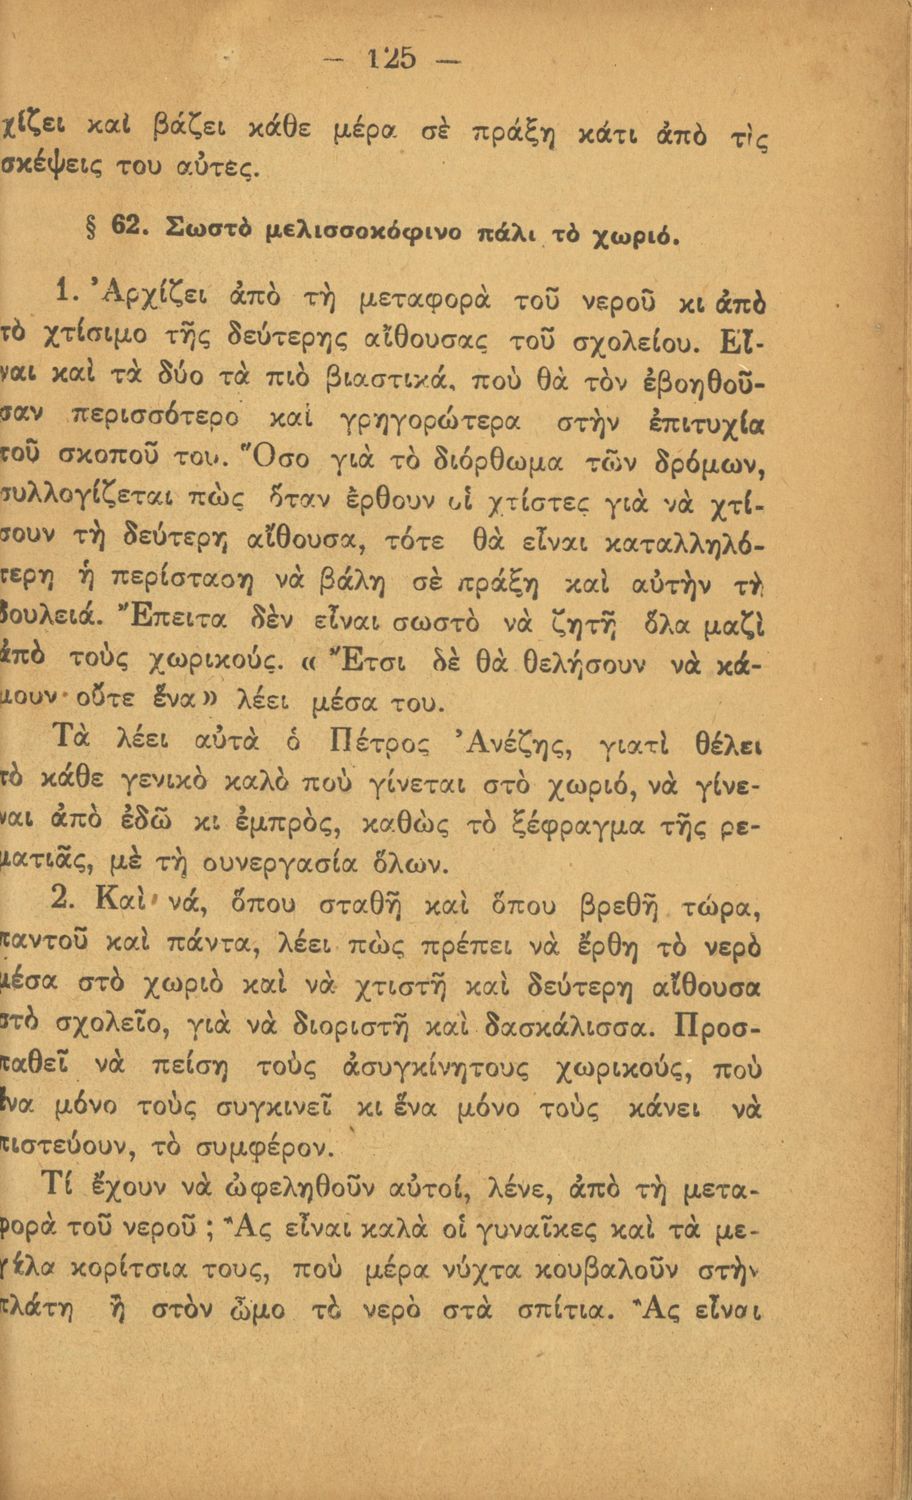 — 125 —
χίζει καὶ βάζει κάθε μέρα σὲ πράξη κάτι ἀπὸ τὶς
σκέψεις του αὐτές.
§ 62. Σωστὸ μελισσοκόφινο πάλι τὸ χωριό.
1. Ἀρχίζει ἀπὸ τὴ μεταφορὰ τοῦ νεροῦ κι ἀπὸ
τὸ χτίσιμο τῆς δεύτερης αἴθουσας τοῦ σχολείου. Εἶ-
ναι καὶ τὰ δύο τὰ πιὸ βιαστικά, ποὺ θὰ τὸν ἐβοηθοῦ-
σαν περισσότερο καὶ γρηγορώτερα στὴν ἐπιτυχία
τοῦ σκοποῦ του. Ὅσο γιὰ τὸ διόρθωμα τῶν δρόμων,
συλλογίζεται πὼς ὅταν ἔρθουν οἱ χτίστες γιὰ νὰ χτί-
σουν τὴ δεύτερη αἴθουσα, τότε θὰ εἶναι καταλληλό-
τερη ἡ περίσταση νὰ βάλη σὲ πράξη καὶ αὐτὴν τὴ
δουλειά. Ἔπειτα δὲν εἶναι σωστὸ νὰ ζητῆ ὅλα μαζὶ
ἀπὸ τοὺς χωρικούς. « Ἔτσι δὲ θὰ θελήσουν νὰ κά-
μουν οὔτε ἕνα» λέει μέσα του.
Τὰ λέει αὐτὰ ὁ Πέτρος Ἀνέζης, γιατὶ θέλει
τὸ κάθε γενικὸ καλὸ ποὺ γίνεται στὸ χωριό, νὰ γίνε-
ναι ἀπὸ ἐδῶ κι ἐμπρὸς, καθὼς τὸ ξέφραγμα τῆς ρε-
ματιᾶς, μὲ τὴ συνεργασία ὅλων.
2. Καὶ νά, ὅπου σταθῆ καὶ ὅπου βρεθῆ τώρα,
παντοῦ καὶ πάντα, λέει πὼς πρέπει νὰ ἔρθη τὸ νερὸ
μέσα στὸ χωριὸ καὶ νὰ χτιστῆ καὶ δεύτερη αἴθουσα
στὸ σχολεῖο, γιὰ νὰ διοριστῆ καὶ δασκάλισσα. Προσ-
παθεῖ νὰ πείση τοὺς ἀσυγκίνητους χωρικούς, ποὺ
ἕνα μόνο τοὺς συγκινεῖ κι ἕνα μόνο τοὺς κάνει νὰ
πιστεύουν, τὸ συμφέρον.
Τί ἔχουν νὰ ὠφεληθοῦν αὐτοί, λένε, ἀπὸ τὴ μετα-
φορὰ τοῦ νεροῦ ; Ἂς εἶναι καλὰ οἱ γυναῖκες καὶ τὰ με-
γάλα κορίτσια τους, ποὺ μέρα νύχτα κουβαλοῦν στὴν
πλάτη ἢ στὸν ὦμο τὸ νερὸ στὰ σπίτια. Ἂς εἶναι